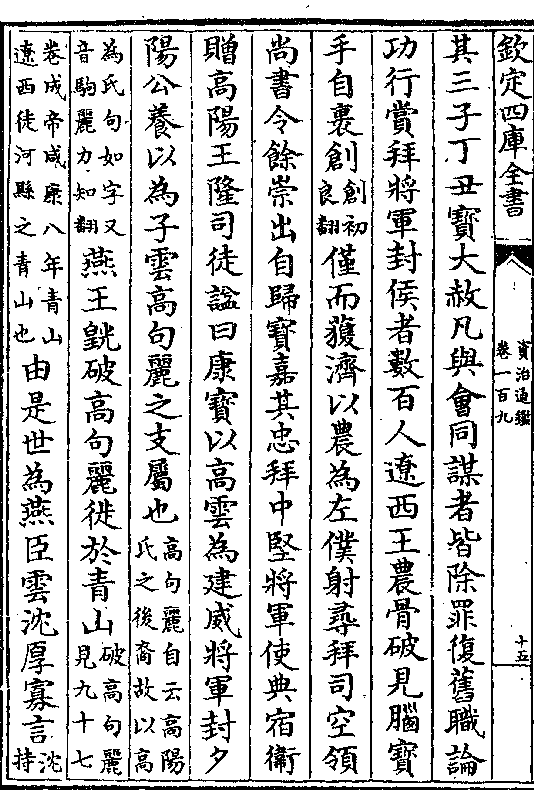 欽定四庫全書
資治通鑑
卷一百九
十五
其三子丁丑寶大赦凡與會同謀者皆除罪復舊職論
功行賞拜將軍封侯者數百人遼西王農骨破見腦寶
手自裹創創初良翻僅而獲濟以農為左僕射尋拜司空領
尚書令餘崇出自歸寶嘉其忠拜中堅將軍使典宿衛
贈高陽王隆司徒諡曰康寶以高雲為建威將軍封夕
陽公養以為子雲高句麗之支屬也高句麗自云高陽氏之後裔故以高
為氏句如字又音駒麗力知翻燕王皝破高句麗徙於青山破高句麗見九十七
卷成帝咸康八年青山遼西徒河縣之青山也由是世為燕臣雲沈厚寡言沈持